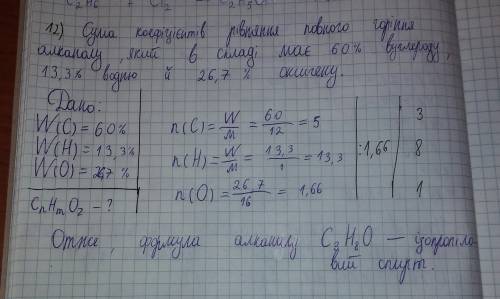 12) Сума коефіцієнтів рівняння повного горіння
алканалу, який в складі має 60% вуглероду,
13,3% водню й 26,7 % оксигену.
Дано:
W(C) = 60%
W(H) = 13,3%
W(O) = 26,7 %
CnHmO2 - ?
n(C) = W/M = 60/12 = 5
3
n(H) = W/M = 13,3/1 = 13,3
:1,66
8
n(O) = 26,7/16 = 1,66
1
Отже, формула алканілу C3H8O — ізопропіло-
вий спирт.